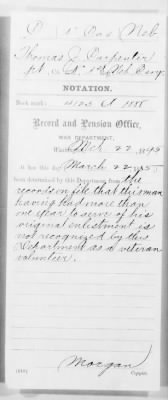 1' Cav Neb
Thomas J. Carpenter
pt. 1st Neb Cavy.
NOTATION.
Book mark: 4123 A 1885
Record and Pension Office,
WAR DEPARTMENT,
Mch 22, 1895
It has this day March 22 1895
been determined by this Department from the
records on file that this man
having had more than
one year to serve of his
original enlistment is
not recognized by this
Department as a veteran
volunteer.
Morgan
Copyist.